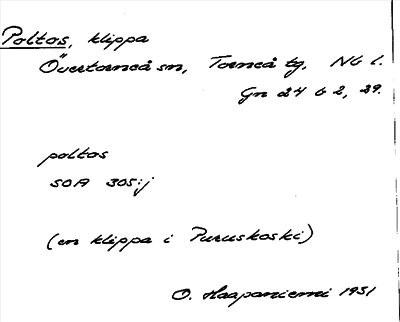 Poltos, klippa
Övertorneå sn, Torneå tg, Nb l.
Gn 24 G 2, 29.
poltos
SOA 305:j
(en klippa i Puruskoski)
O. Haapaniemi 1931